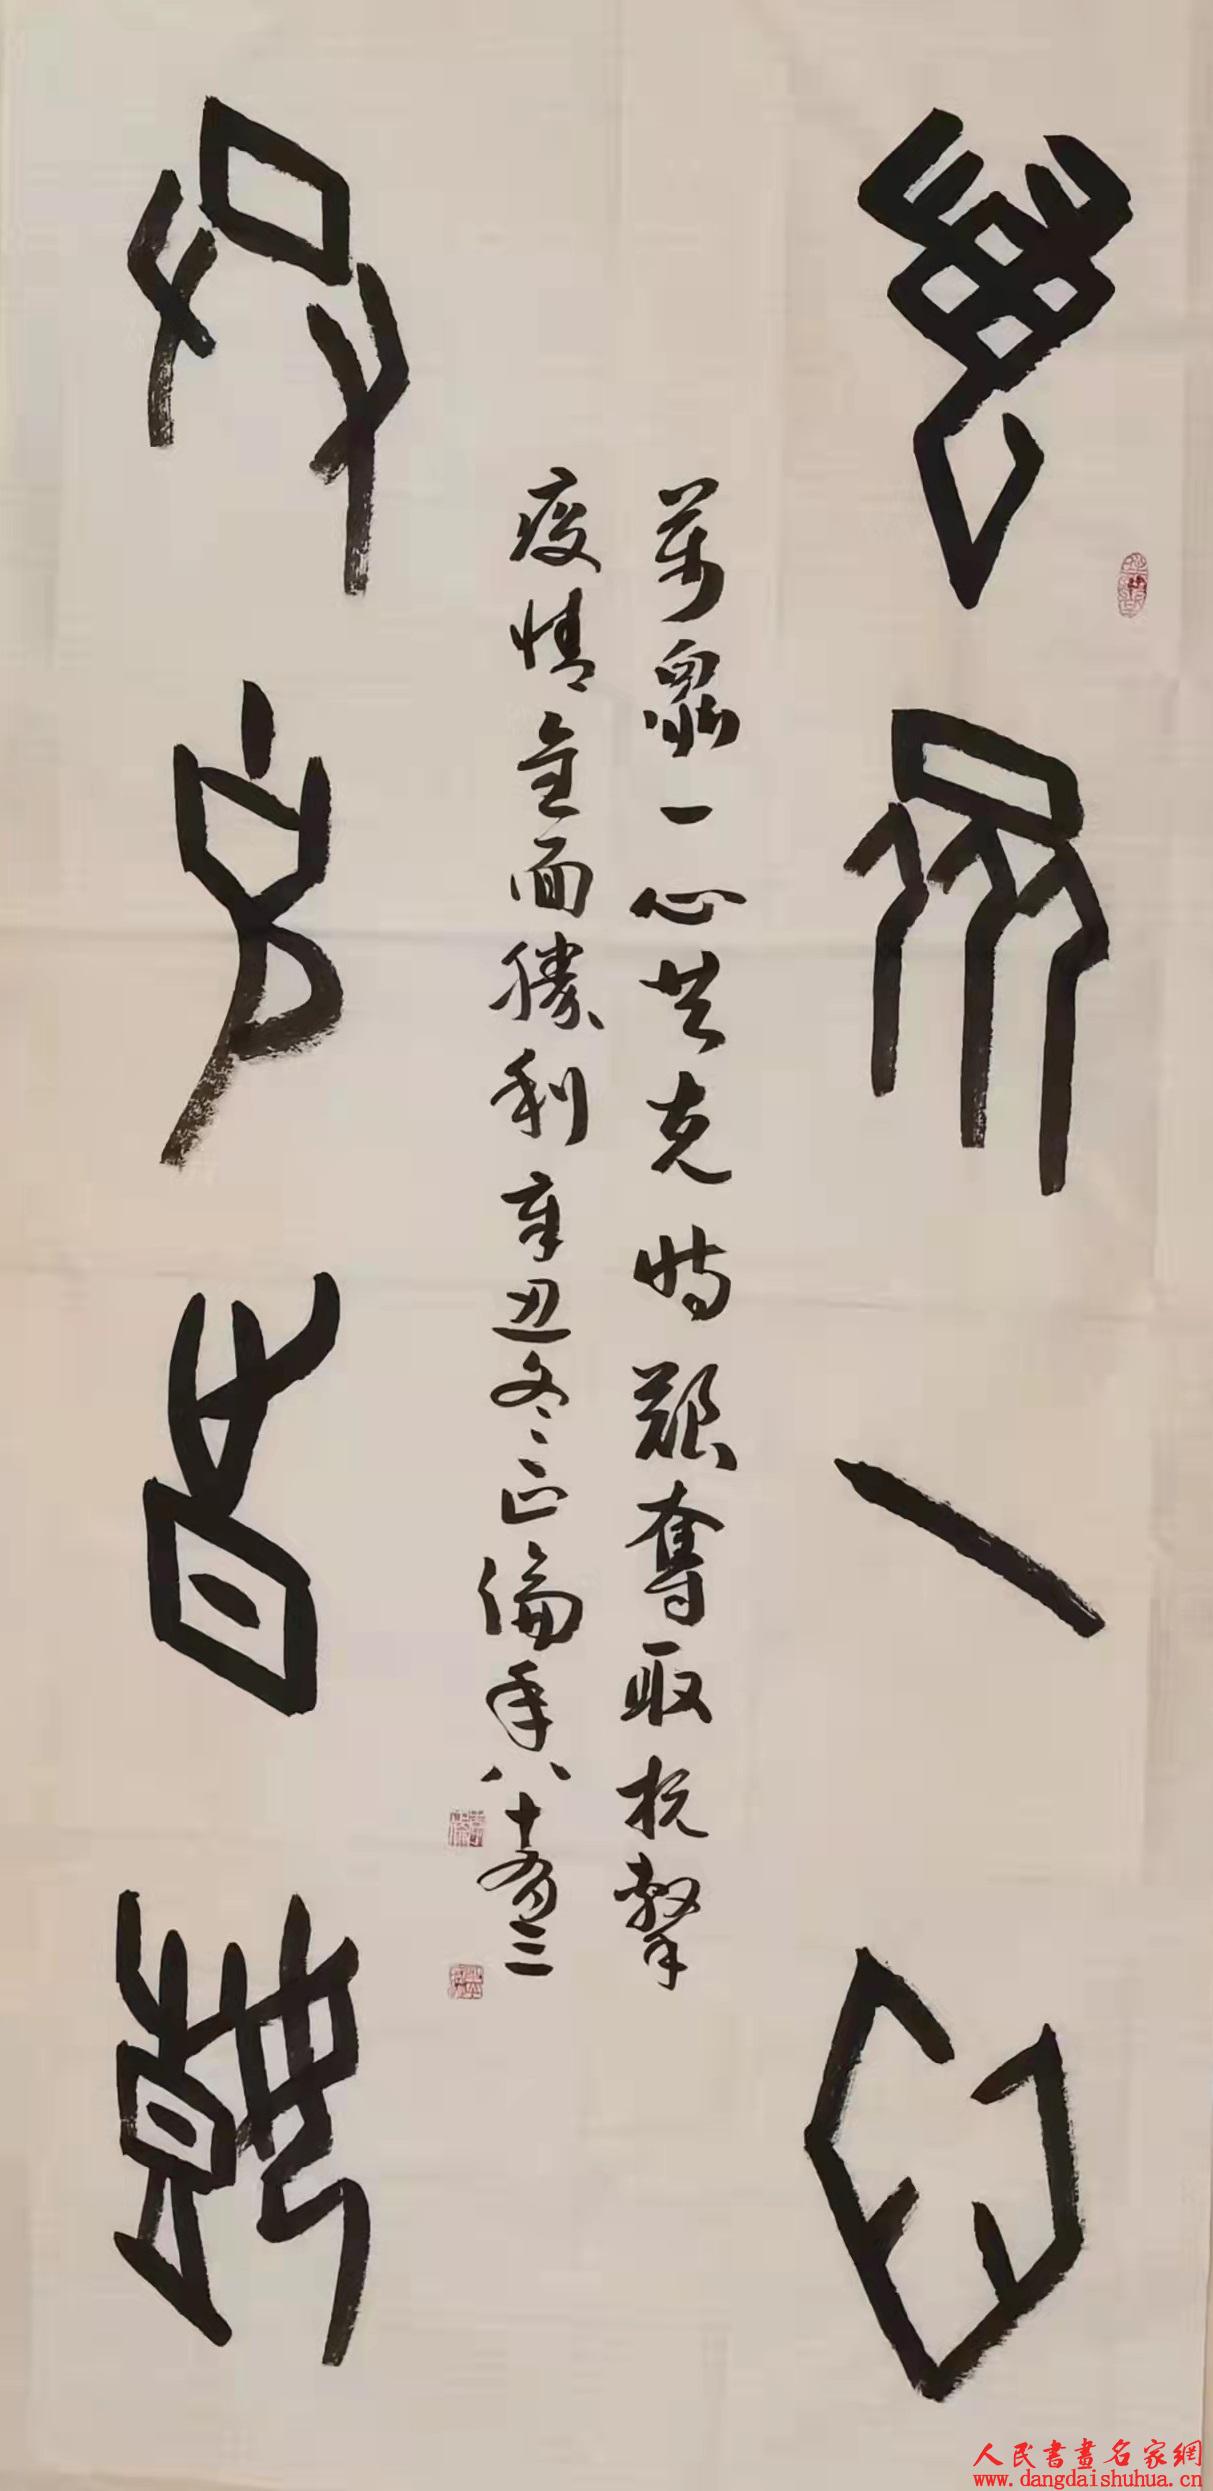 萬眾一心
共克時艱
萬眾一心共克時艱奪取抗擊
疫情全面勝利辛丑冬正倫年八十有三
人民書畫名家網
www.dangdaishuhua.cn